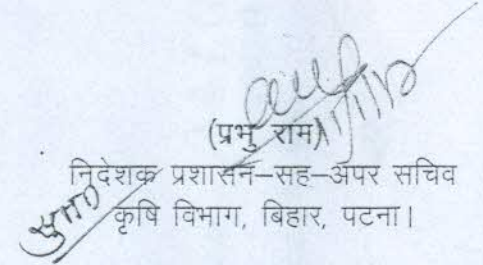 (प्रभु राम)
निदेशक प्रशासन–सह–अपर सचिव
कृषि विभाग, बिहार, पटना।